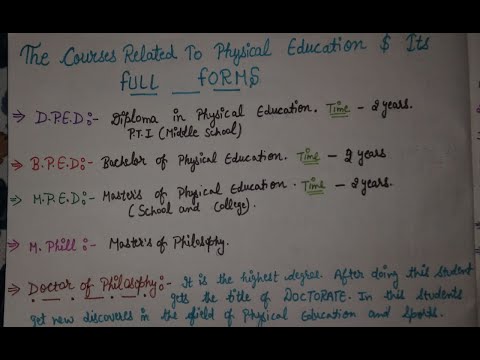 The Courses Related To Physical Education & Its
FULL FORMS
⇒ D.P.E.D:- Diploma in Physical Education. Time - 2 years.
P.T.I (Middle School)
⇒ B.P.E.D:- Bachelor of Physical Education. Time - 2 years
⇒ M.P.E.D:- Master's of Physical Education. Time - 2 years.
(School and College).
⇒ M. Phill:- Master's of Philosophy.
⇒ Doctor of Philosophy:- It is the highest degree. After doing this student
gets the title of DOCTORATE. In this students
get new discoveres in the field of Physical Education and Sports.